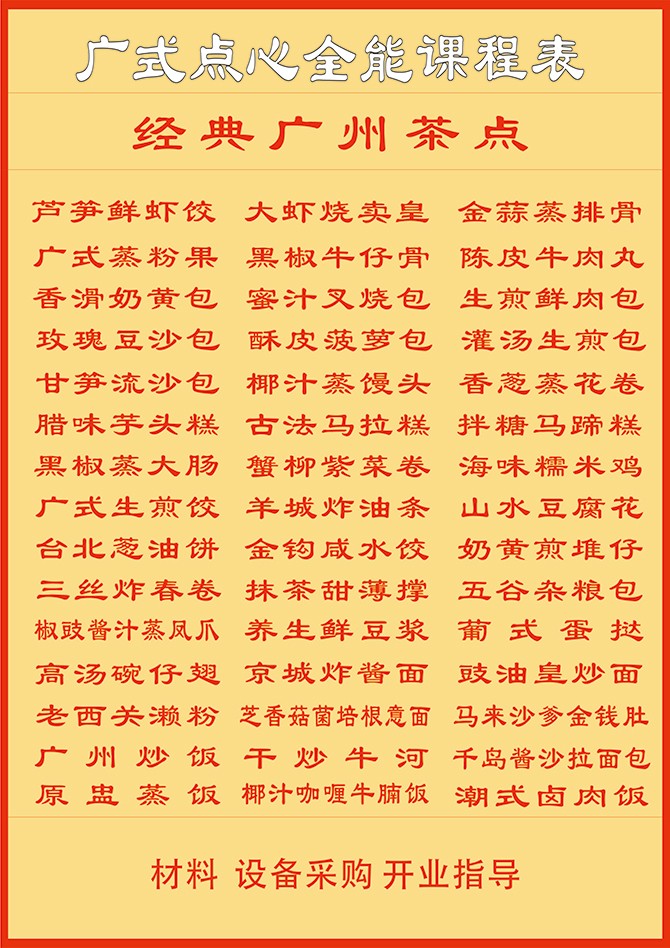 广式点心全能课程表
经典广州茶点
芦笋鲜虾饺 大虾烧卖皇 金蒜蒸排骨
广式蒸粉果 黑椒牛仔骨 陈皮牛肉丸
香滑奶黄包 蜜汁叉烧包 生煎鲜肉包
玫瑰豆沙包 酥皮菠萝包 灌汤生煎包
甘笋流沙包 椰汁蒸馒头 香葱蒸花卷
腊味芋头糕 古法马拉糕 拌糖马蹄糕
黑椒蒸大肠 蟹柳紫菜卷 海味糯米鸡
广式生煎饺 羊城炸油条 山水豆腐花
台北葱油饼 金钩咸水饺 奶黄煎堆仔
三丝炸春卷 抹茶甜薄撑 五谷杂粮包
椒豉酱汁蒸凤爪 养生鲜豆浆 葡式蛋挞
高汤碗仔翅 京城炸酱面 豉油皇炒面
老西关濑粉 芝香菇菌培根意面 马来沙爹金钱肚
广州炒饭 干炒牛河 千岛酱沙拉面包
原盅蒸饭 椰汁咖喱牛腩饭 潮式卤肉饭
材料 设备采购 开业指导